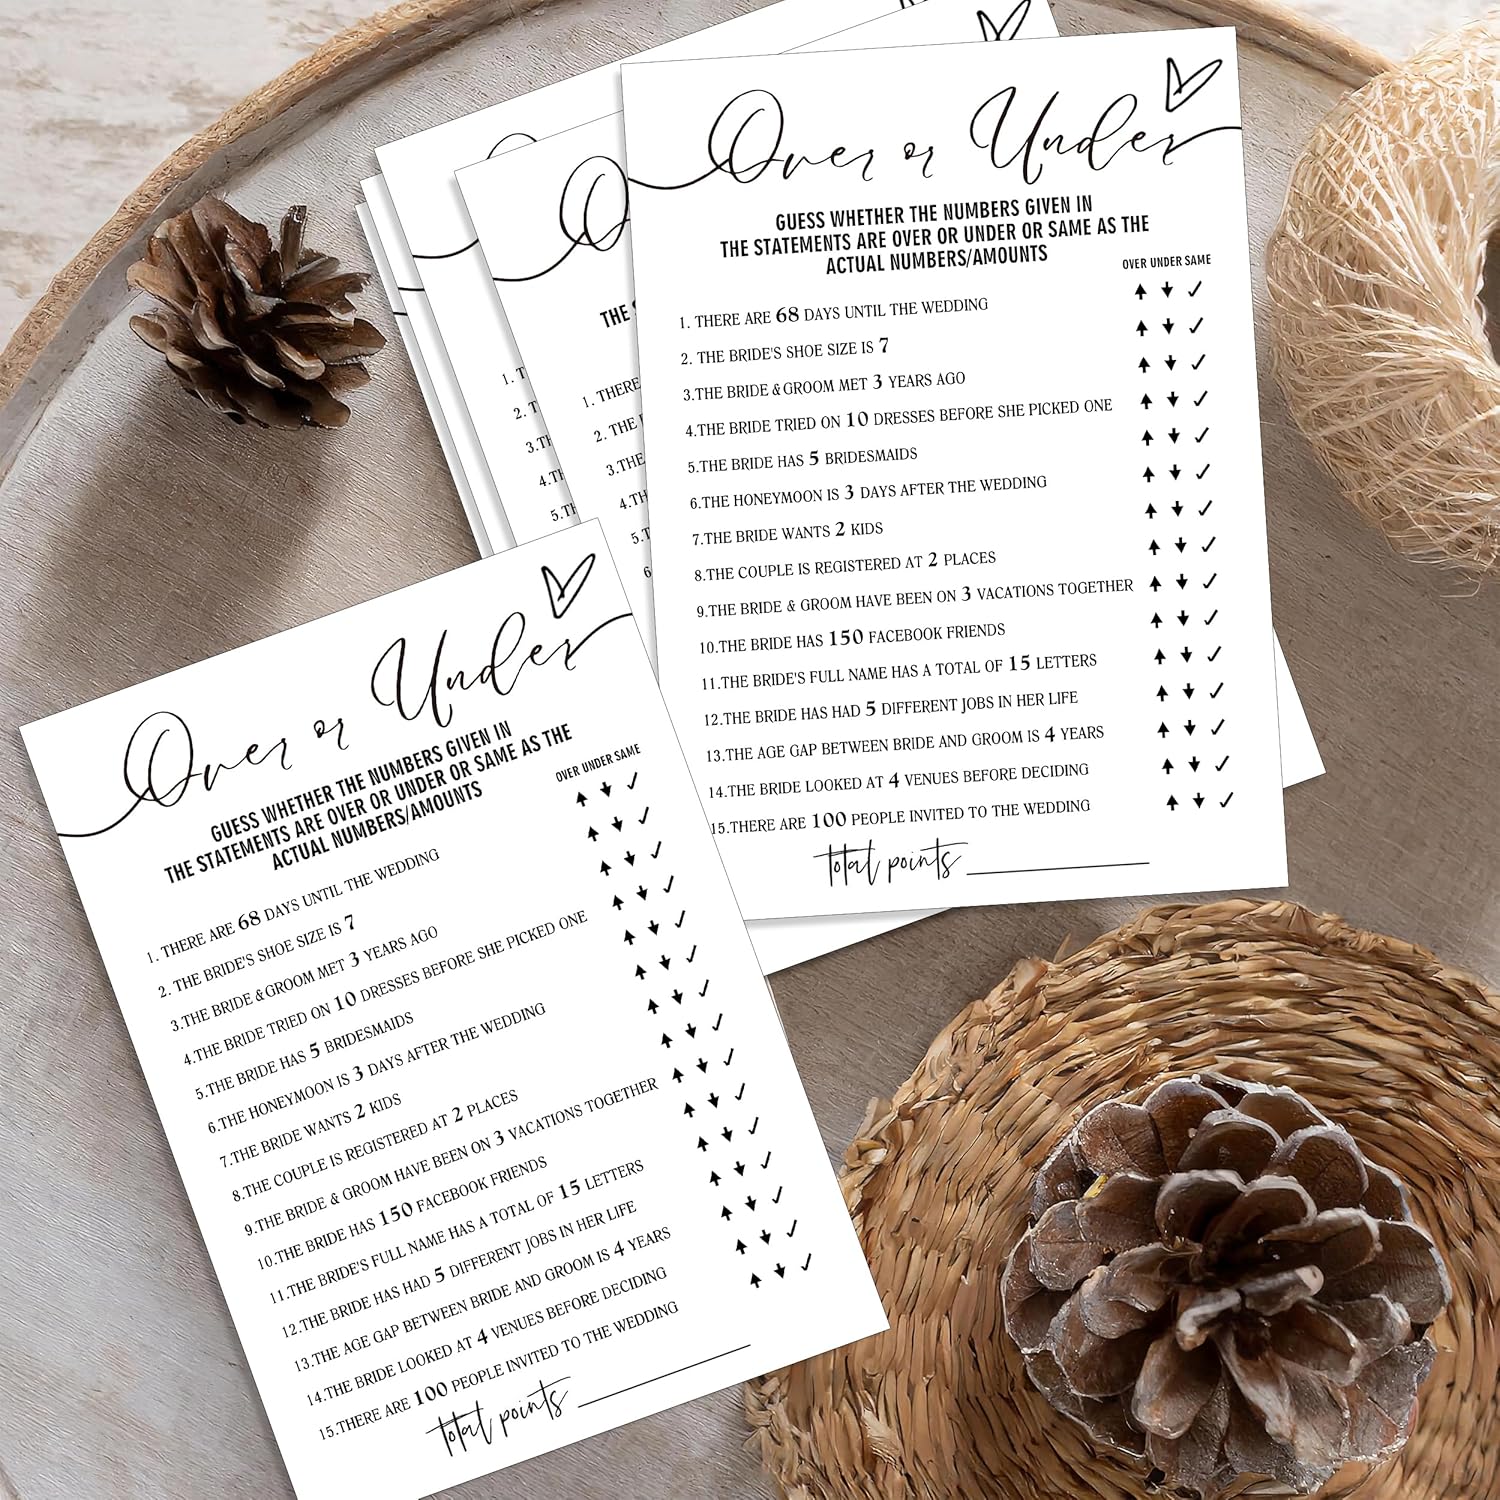 Over or Under
GUESS WHETHER THE NUMBERS GIVEN IN
THE STATEMENTS ARE OVER OR UNDER OR SAME AS THE
ACTUAL NUMBERS/AMOUNTS
OVER UNDER SAME
1. THERE ARE 68 DAYS UNTIL THE WEDDING
2. THE BRIDE'S SHOE SIZE IS 7
3.THE BRIDE & GROOM MET 3 YEARS AGO
4.THE BRIDE TRIED ON 10 DRESSES BEFORE SHE PICKED ONE
5.THE BRIDE HAS 5 BRIDESMAIDS
6.THE HONEYMOON IS 3 DAYS AFTER THE WEDDING
7.THE BRIDE WANTS 2 KIDS
8.THE COUPLE IS REGISTERED AT 2 PLACES
9.THE BRIDE & GROOM HAVE BEEN ON 3 VACATIONS TOGETHER
10.THE BRIDE HAS 150 FACEBOOK FRIENDS
11.THE BRIDE'S FULL NAME HAS A TOTAL OF 15 LETTERS
12.THE BRIDE HAS HAD 5 DIFFERENT JOBS IN HER LIFE
13.THE AGE GAP BETWEEN BRIDE AND GROOM IS 4 YEARS
14.THE BRIDE LOOKED AT 4 VENUES BEFORE DECIDING
15.THERE ARE 100 PEOPLE INVITED TO THE WEDDING
total points
O
THE
1. THERE
2. THE
3.THE
4.TH
5.T
6
1. T
2. T
3.TH
4.TH
5.TH
Over or Under
GUESS WHETHER THE NUMBERS GIVEN IN
THE STATEMENTS ARE OVER OR UNDER OR SAME AS THE
ACTUAL NUMBERS/AMOUNTS
OVER UNDER SAME
1. THERE ARE 68 DAYS UNTIL THE WEDDING
2. THE BRIDE'S SHOE SIZE IS 7
3.THE BRIDE & GROOM MET 3 YEARS AGO
4.THE BRIDE TRIED ON 10 DRESSES BEFORE SHE PICKED ONE
5.THE BRIDE HAS 5 BRIDESMAIDS
6.THE HONEYMOON IS 3 DAYS AFTER THE WEDDING
7.THE BRIDE WANTS 2 KIDS
8.THE COUPLE IS REGISTERED AT 2 PLACES
9.THE BRIDE & GROOM HAVE BEEN ON 3 VACATIONS TOGETHER
10.THE BRIDE HAS 150 FACEBOOK FRIENDS
11.THE BRIDE'S FULL NAME HAS A TOTAL OF 15 LETTERS
12.THE BRIDE HAS HAD 5 DIFFERENT JOBS IN HER LIFE
13.THE AGE GAP BETWEEN BRIDE AND GROOM IS 4 YEARS
14.THE BRIDE LOOKED AT 4 VENUES BEFORE DECIDING
15.THERE ARE 100 PEOPLE INVITED TO THE WEDDING
total points